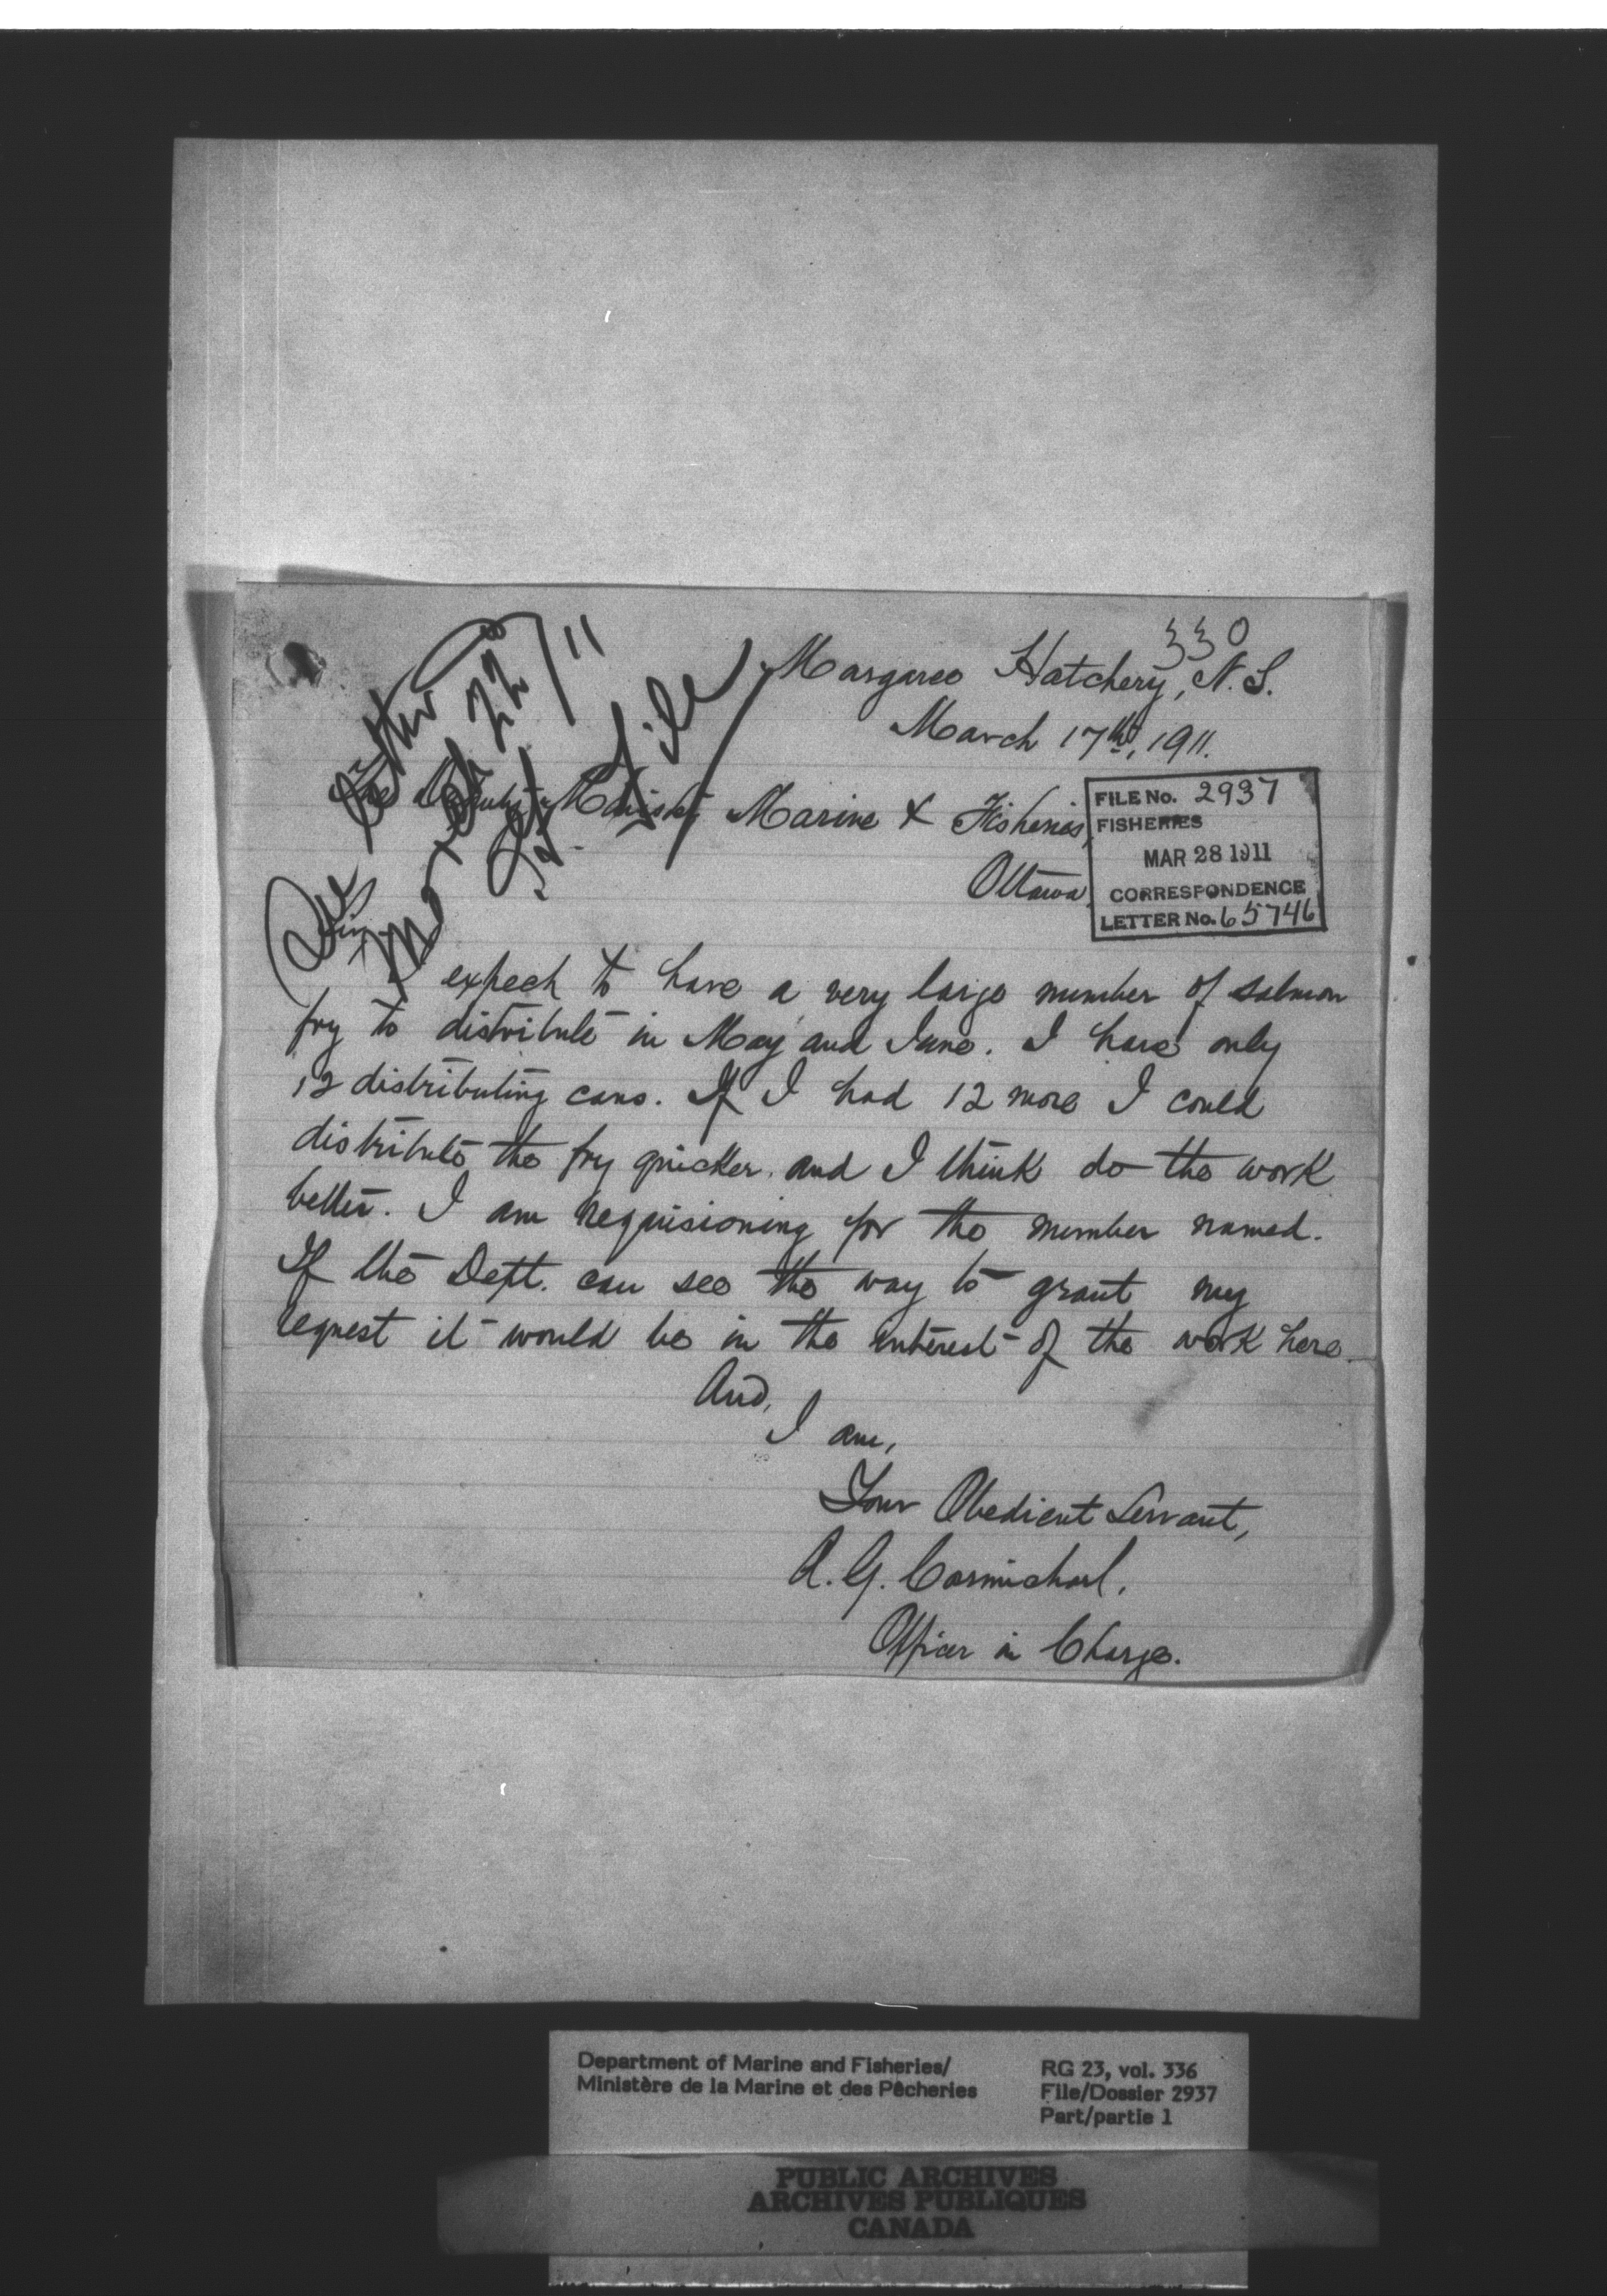 330
Margaree Hatchery, N.S.
March 17th, 1911.
The Deputy Minister Marine & Fisheries,
Ottawa.
FILE No. 2937
FISHERIES
MAR 28 1911
CORRESPONDENCE
LETTER No. 65746
See letter
March 22/11
file
Sir,
I expect to have a very large number of salmon
fry to distribute in May and June. I have only
12 distributing cans. If I had 12 more I could
distribute the fry quicker. and I think do the work
better. I am requisioning for the number named.
If the Dept. can see the way to grant my
request it would be in the interest of the work here
And,
I am,
Your Obedient Servant,
A. G. Carmichael.
Officer in Charge.
Department of Marine and Fisheries/
Ministère de la Marine et des Pêcheries
RG 23, vol. 336
File/Dossier 2937
Part/partie 1
PUBLIC ARCHIVES
ARCHIVES PUBLIQUES
CANADA